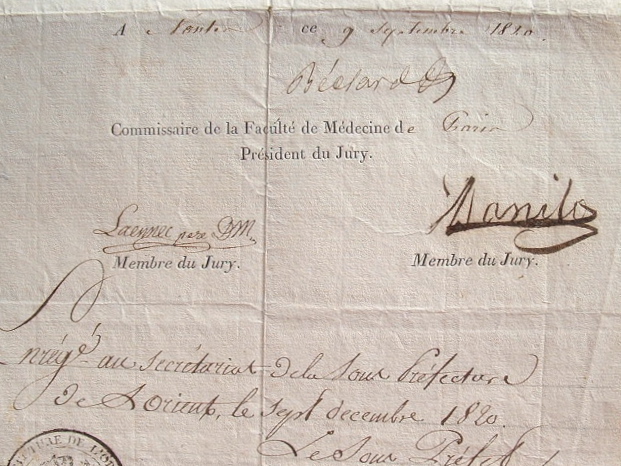 A Nantes ce 9 septembre 1820.
Béclard
Commissaire de la Faculté de Médecine de Paris
Président du Jury.
Laennec père DM
Membre du Jury.
Membre du Jury.
Enrégé au secrétariat de la Sous Préfecture
de Lorient, le sept decembre 1820.
Le Sous Préfet